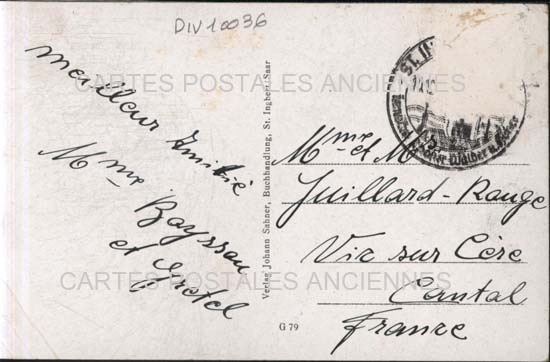 DIV10036
CARTES POSTALES ANCIENNES
meilleur Amitié
Mme Bayssau
et Gretel
Verlag Johann Sahner, Buchhandlung, St. Ingbert/Saar
G 79
ST. IN
Mme et M
Juillard-Range
Vic sur Cère
Cantal
France
CARTES POSTALES ANCIENNES